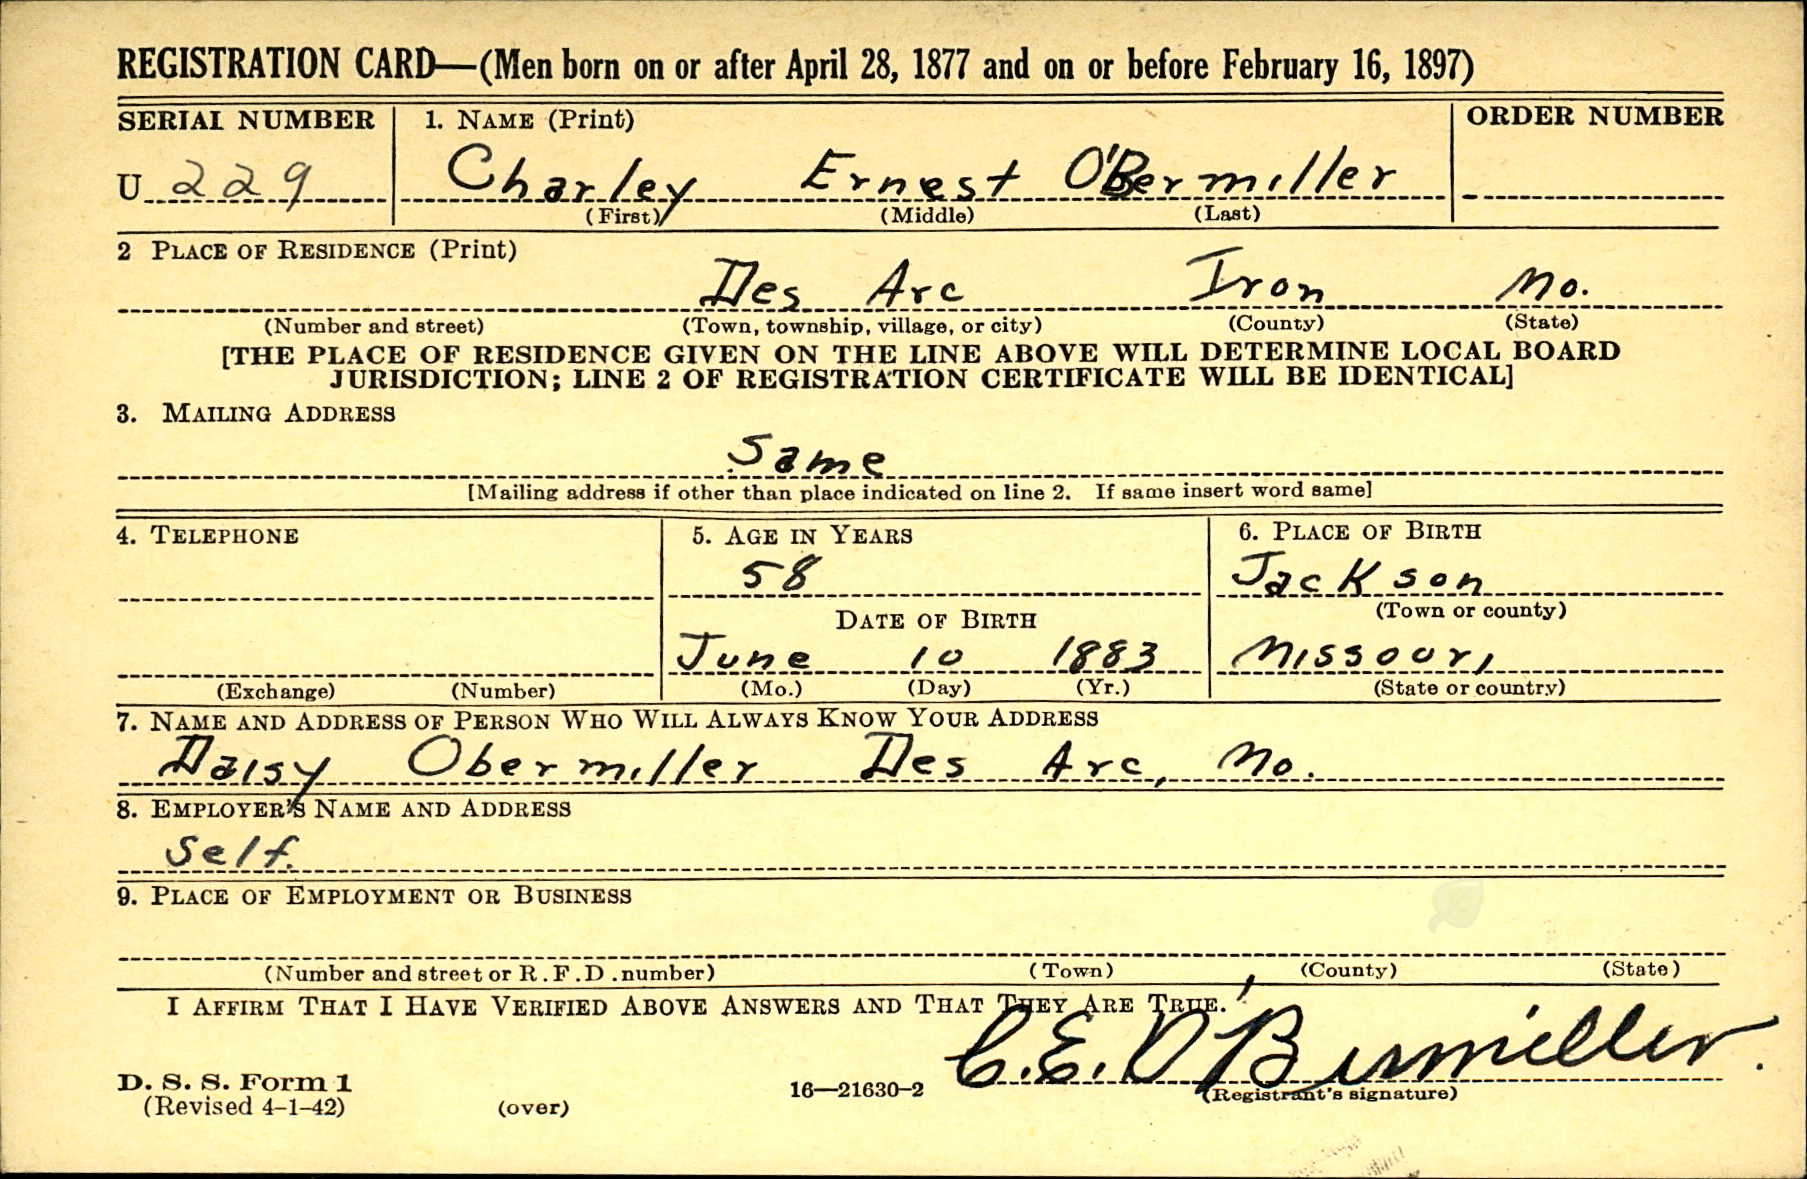 REGISTRATION CARD—(Men born on or after April 28, 1877 and on or before February 16, 1897)
SERIAL NUMBER 1. NAME (Print) ORDER NUMBER
U 229 Charley Ernest O'Bermiller
(First) (Middle) (Last)
2 PLACE OF RESIDENCE (Print)
Des Arc Iron Mo.
(Number and street) (Town, township, village, or city) (County) (State)
[THE PLACE OF RESIDENCE GIVEN ON THE LINE ABOVE WILL DETERMINE LOCAL BOARD
JURISDICTION; LINE 2 OF REGISTRATION CERTIFICATE WILL BE IDENTICAL]
3. MAILING ADDRESS
Same
[Mailing address if other than place indicated on line 2. If same insert word same]
4. TELEPHONE 5. AGE IN YEARS 6. PLACE OF BIRTH
58 Jackson
(Town or county)
DATE OF BIRTH
June 10 1883 Missouri
(Exchange) (Number) (Mo.) (Day) (Yr.) (State or country)
7. NAME AND ADDRESS OF PERSON WHO WILL ALWAYS KNOW YOUR ADDRESS
Daisy Obermiller Des Arc, Mo.
8. EMPLOYER'S NAME AND ADDRESS
Self.
9. PLACE OF EMPLOYMENT OR BUSINESS
(Number and street or R.F.D. number) (Town) (County) (State)
I AFFIRM THAT I HAVE VERIFIED ABOVE ANSWERS AND THAT THEY ARE TRUE.
C. E. O'Bermiller.
D. S. S. Form 1 16—21630-2 (Registrant's signature)
(Revised 4-1-42) (over)